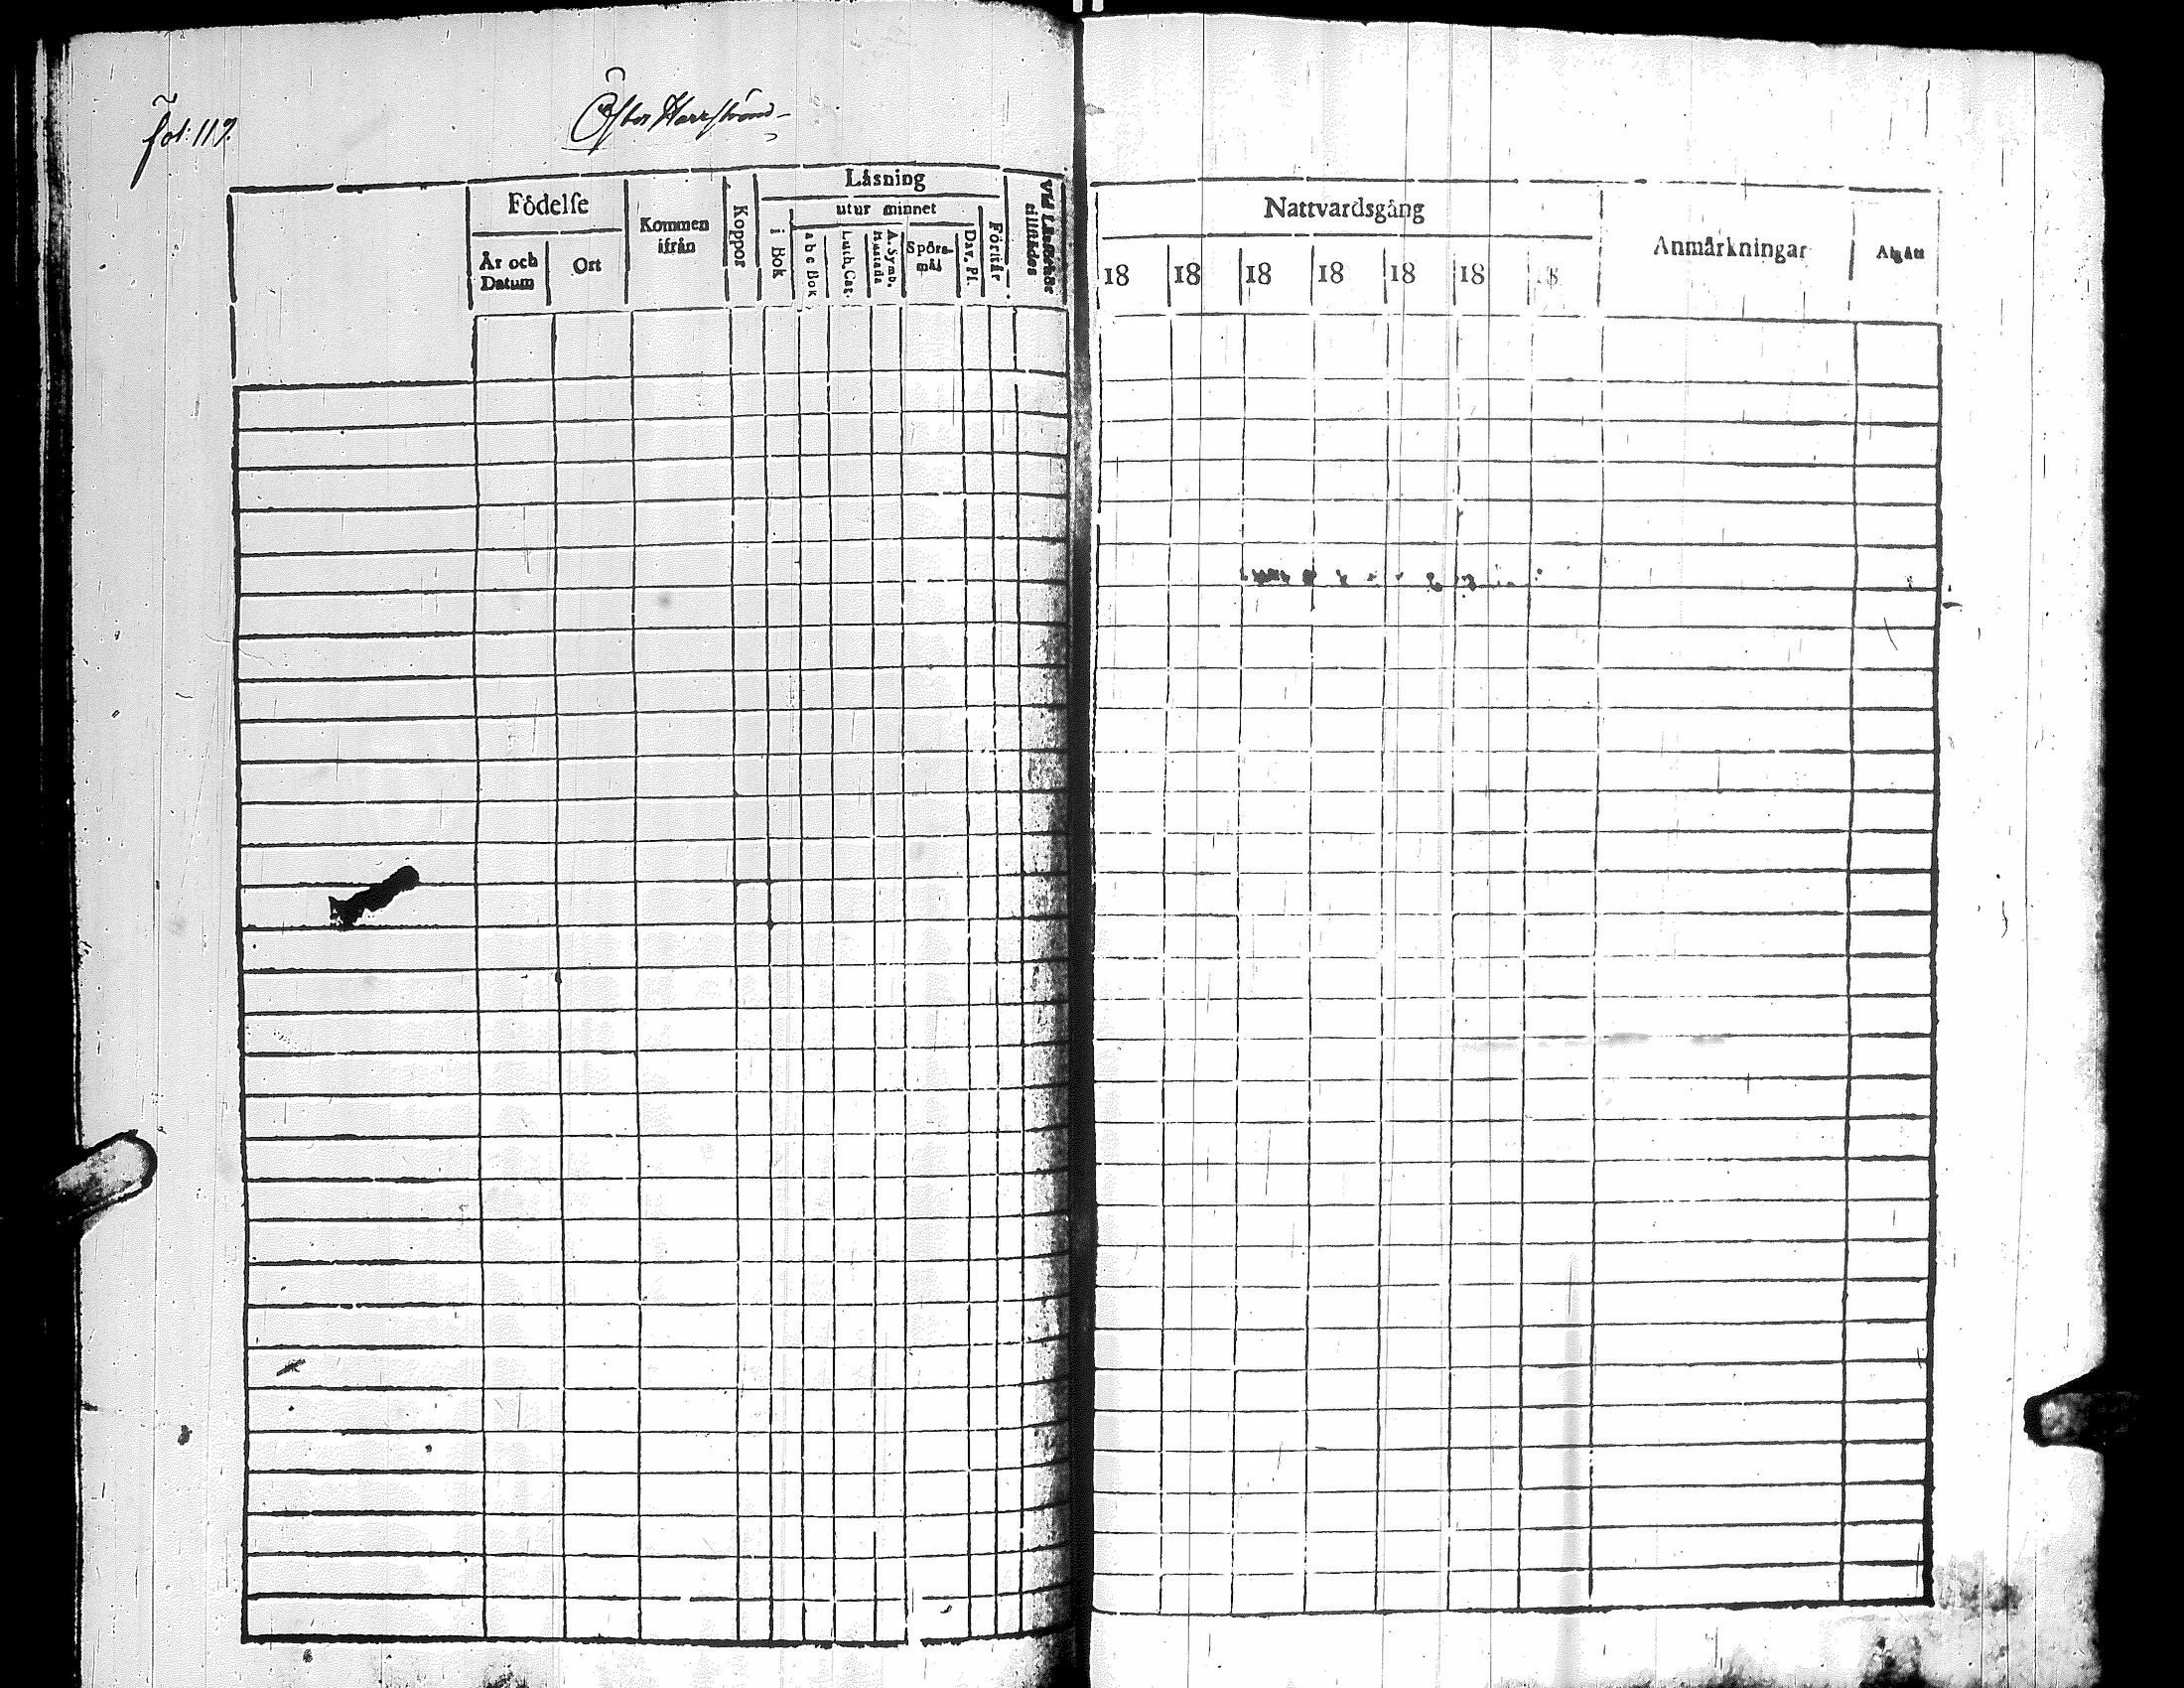 fol: 117.
Öster Harrström
Födelse
År och Datum
Ort
Kommen ifrån
Koppor
Läsning
i Bok
utur minnet
a b c Bok
Luth. Cat.
A. Symb.
Spörs-mål
Dav. Ps.
Förstår
Nattvardsgång
18 18 18 18 18 18 18
Anmärkningar
Afgått